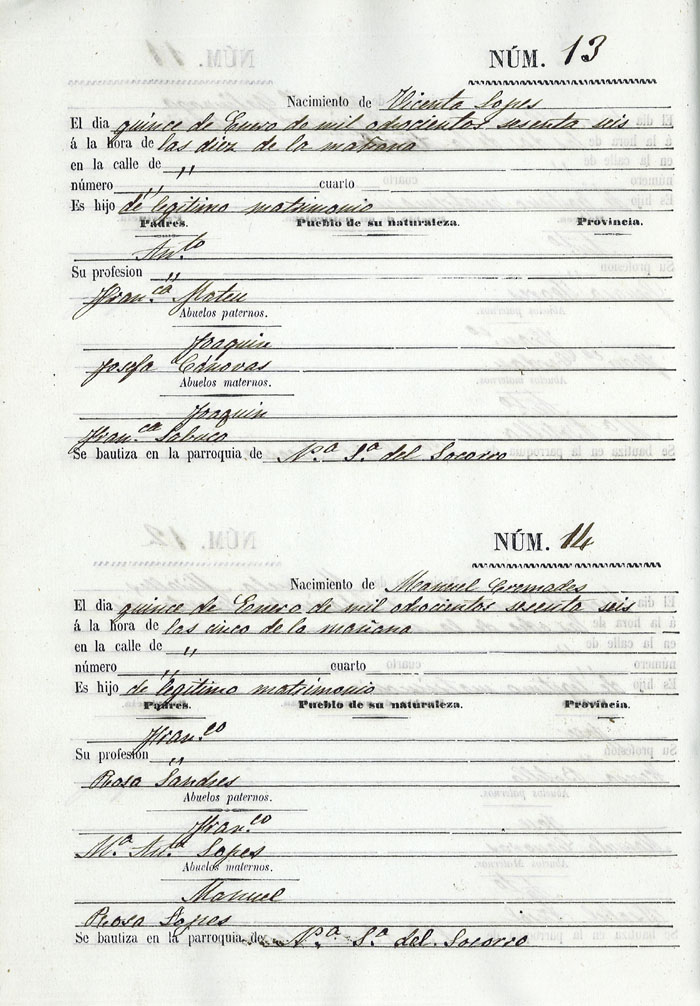 NÚM. 13
Nacimiento de Vicenta Lopes
El dia quince de Enero de mil odocientos sesenta seis
á la hora de las diez de la mañana
en la calle de ,,
número ,, cuarto
Es hijo de legitimo matrimonio
Padres. Pueblo de su naturaleza. Provincia.
An.to
Su profesion ,,
Fran.ca Mateu
Abuelos paternos.
Joaquin
Josefa Cánovas
Abuelos maternos.
Joaquin
Fran.ca Sabuco
Se bautiza en la parroquia de N.a S.a del Socorro
NÚM. 14
Nacimiento de Manuel Cremades
El dia quince de Enero de mil odocientos secenta seis
á la hora de las cinco de la mañana
en la calle de ,,
número ,, cuarto
Es hijo de legitimo matrimonio
Padres. Pueblo de su naturaleza. Provincia.
Fran.co
Su profesión ,,
Rosa Sandres
Abuelos paternos.
Fran.co
M.a An.a Lopes
Abuelos maternos.
Manuel
Rosa Lopes
Se bautiza en la parroquia de N.a S.a del Socorro